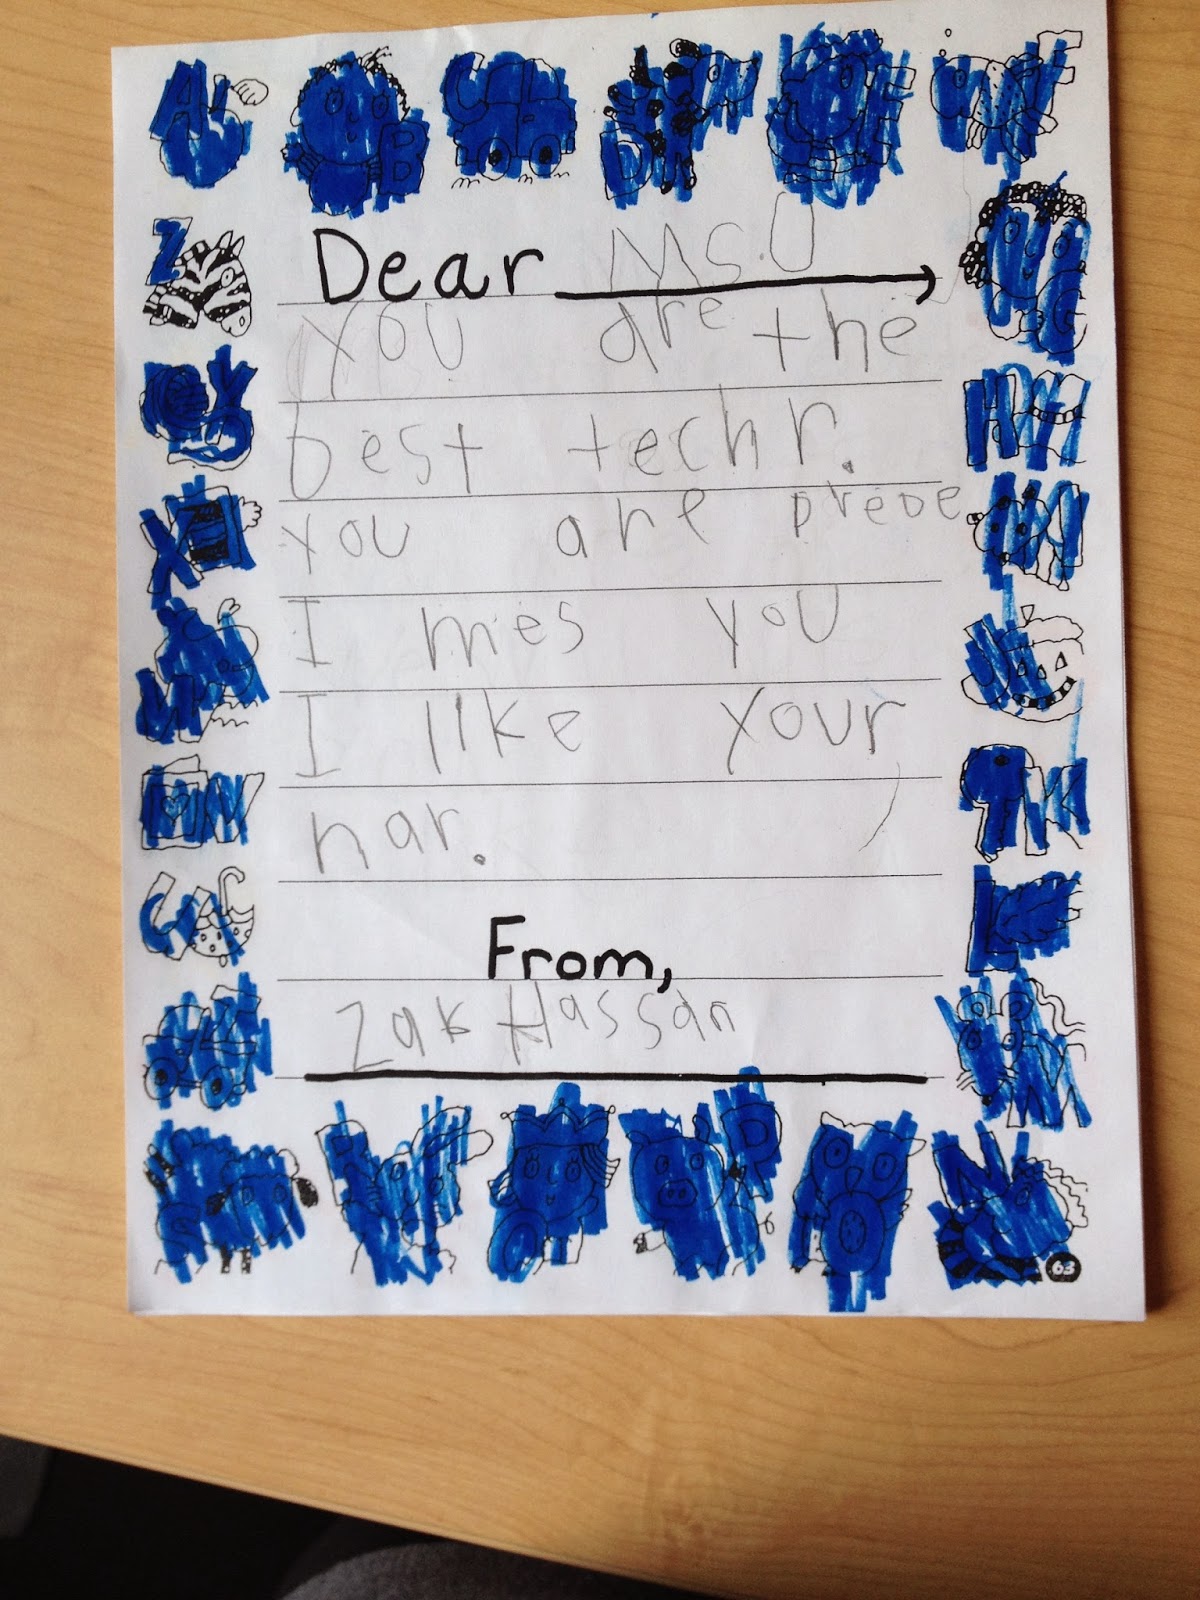 Dear Ms.O
you are the
best techr.
you are prede.
I mes you
I like your
har.
From,
Zak Hassan
63